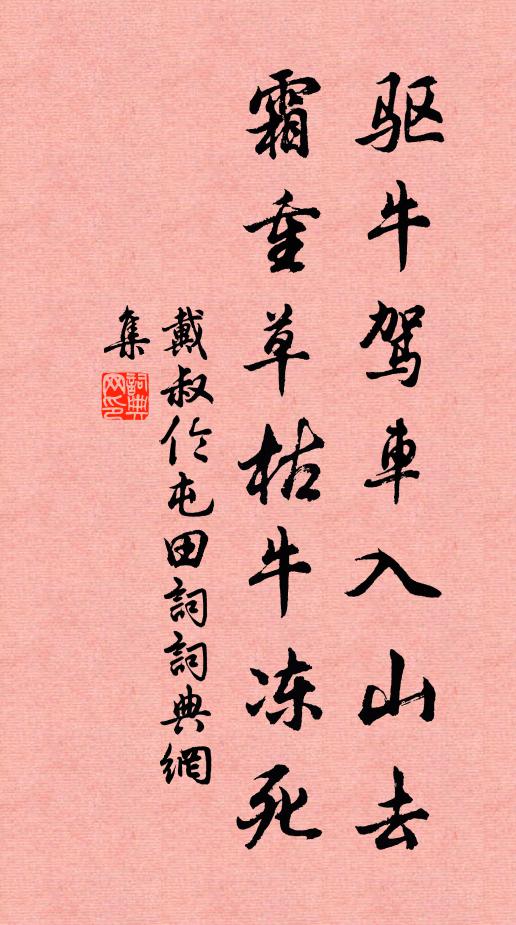 驱牛驾車入山去
霜重草枯牛冻死
戴叔伦屯田詞詞典網
集
詞典
网印